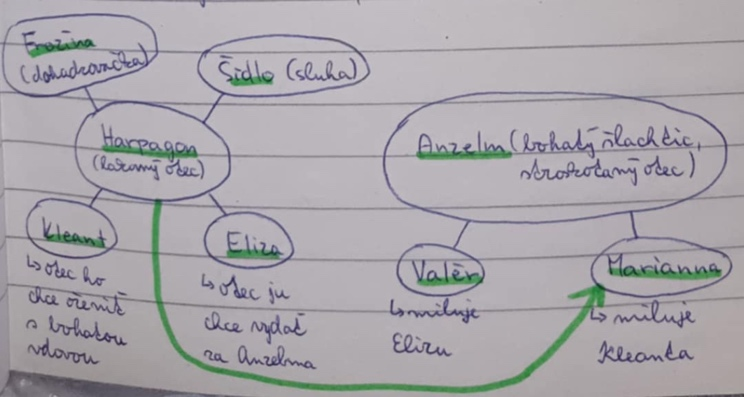 Frozina
(dohadzovačka)
Šidlo (sluha)
Harpagon
(lakomý otec)
Anzelm (bohatý šlachtic,
stroskotaný otec)
Kleant
↳ otec ho
chce oženiť
s bohatou
vdovou
Eliza
↳ otec ju
chce vydať
za Anzelma
Valér
↳ miluje
Elizu
Marianna
↳ miluje
Kleanta